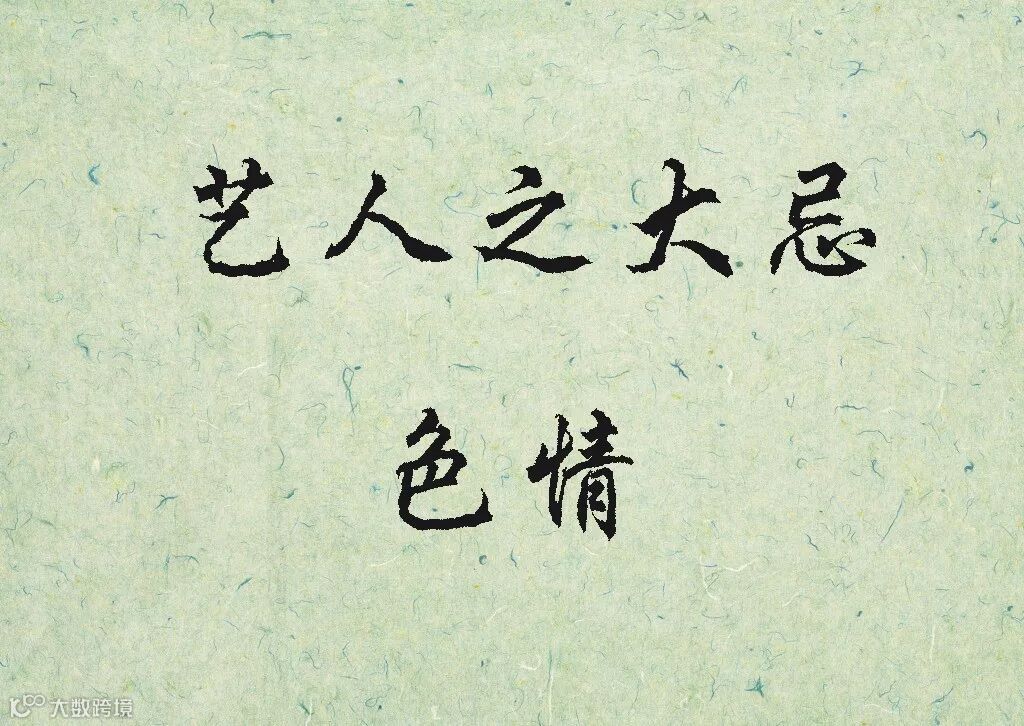 艺人之大忌
色情
大数跨境